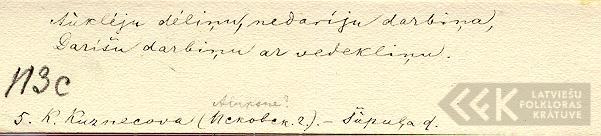 Aūklēju dēliņu, nedarīju darbiņa,
Darīšu darbiņu ar vedekliņu.
113c
Aiukone?
5. K. Kuznecova (Псковск. г.). – Šūpuļa d.
LATVIEŠU
FOLKLORAS
KRĀTUVE